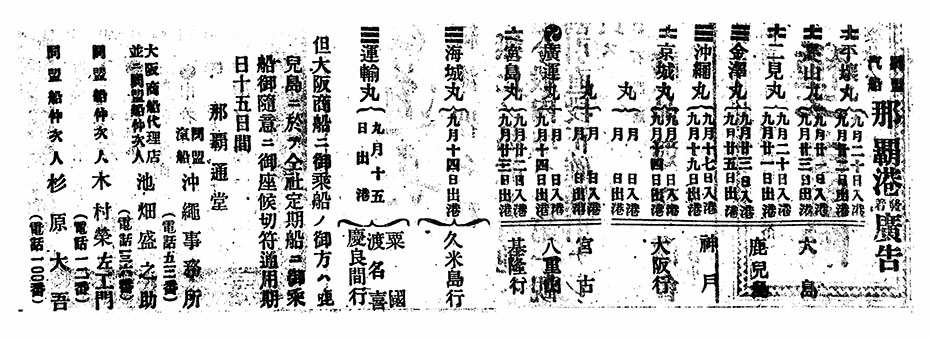 同盟汽船 那覇港發着廣告
平壌丸 九月二十日入港
九月廿二日出港
大島
二見丸 九月二十日入港
九月廿一日出港
鹿兒島
金澤丸 九月廿三日入港
九月廿五日出港
沖繩丸 九月十七日入港
九月十九日出港
神戸
京城丸
九月十四日出港
大阪行
丸 月 日入港
月 日出港
丸 月 日入港
月 日出港
宮古
廣運丸 月 日入港
月 日出港
八重山
宮島丸 九月廿二日入港
九月廿三日出港
基隆行
海城丸 九月十四日出港 久米島行
運輸丸 九月十五日出港
粟國
渡名喜
慶良間行
但大阪商船ニ御乘船ノ御方ハ鹿
兒島ニ於テ仝社定期船ニ御乘
船御隨意ニ御座候切符通用期
日十五日間
那覇通堂
同盟汽船 沖繩事務所
(電話五三番)
大阪商船代理店
並ニ同盟船仲次人 池畑盛之助
同盟船仲次人 木村榮左エ門
(電話一二番)
同盟船仲次人 杉原大吾
(電話一〇〇番)